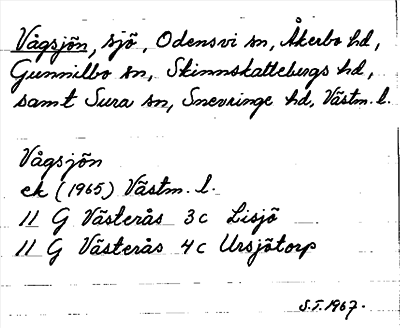 Vågsjön, sjö, Odensvi sn, Åkerbo hd,
Gunnilbo sn, Skinnskattebergs hd,
samt Sura sn, Snevringe hd, Västm. l.
Vågsjön
ek (1965) Västm. l.
11 G Västerås 3c Lisjö
11 G Västerås 4c Ursjötorp
S.F. 1967.